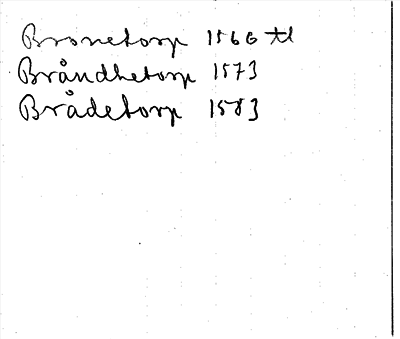 Bronetorp 1566 tl
Bråndhetorp 1573
Brådetorp 1583